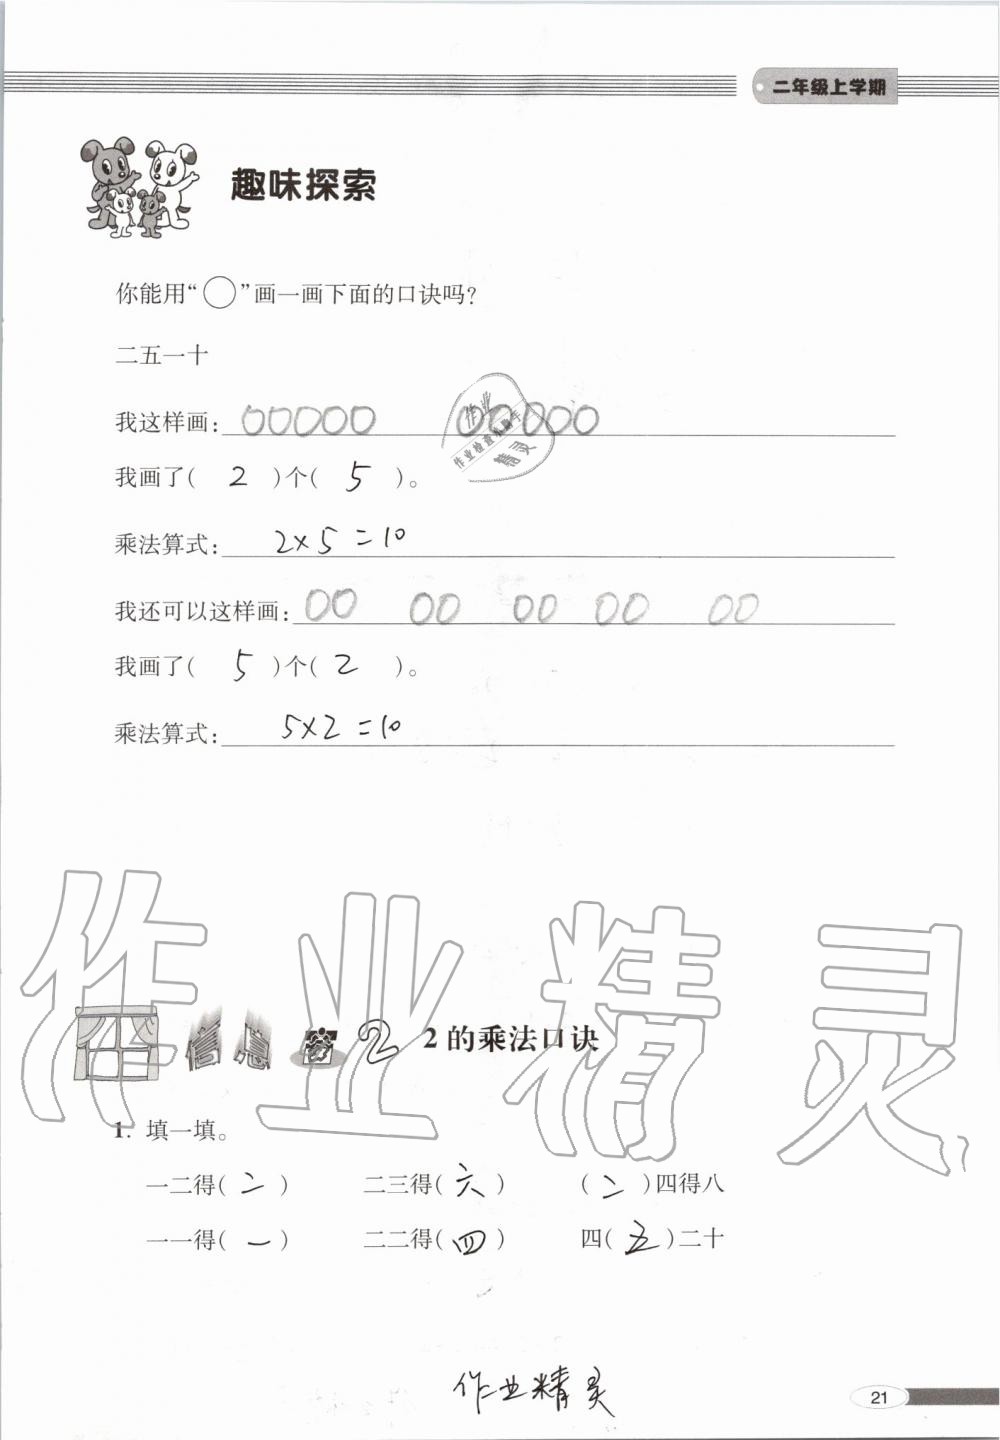 二年级上学期
趣味探索
你能用“○”画一画下面的口诀吗?
二五一十
我这样画: 00000 00000
作业
作业检查小助手
精灵
我画了( 2 )个( 5 )。
乘法算式: 2×5=10
我还可以这样画: 00 00 00 00 00
我画了( 5 )个( 2 )。
乘法算式: 5×2=10
作业精灵
信息窗2 2的乘法口诀
1. 填一填。
一二得( 二 ) 二三得( 六 ) ( 二 )四得八
一一得( 一 ) 二二得( 四 ) 四( 五 )二十
作业精灵
21